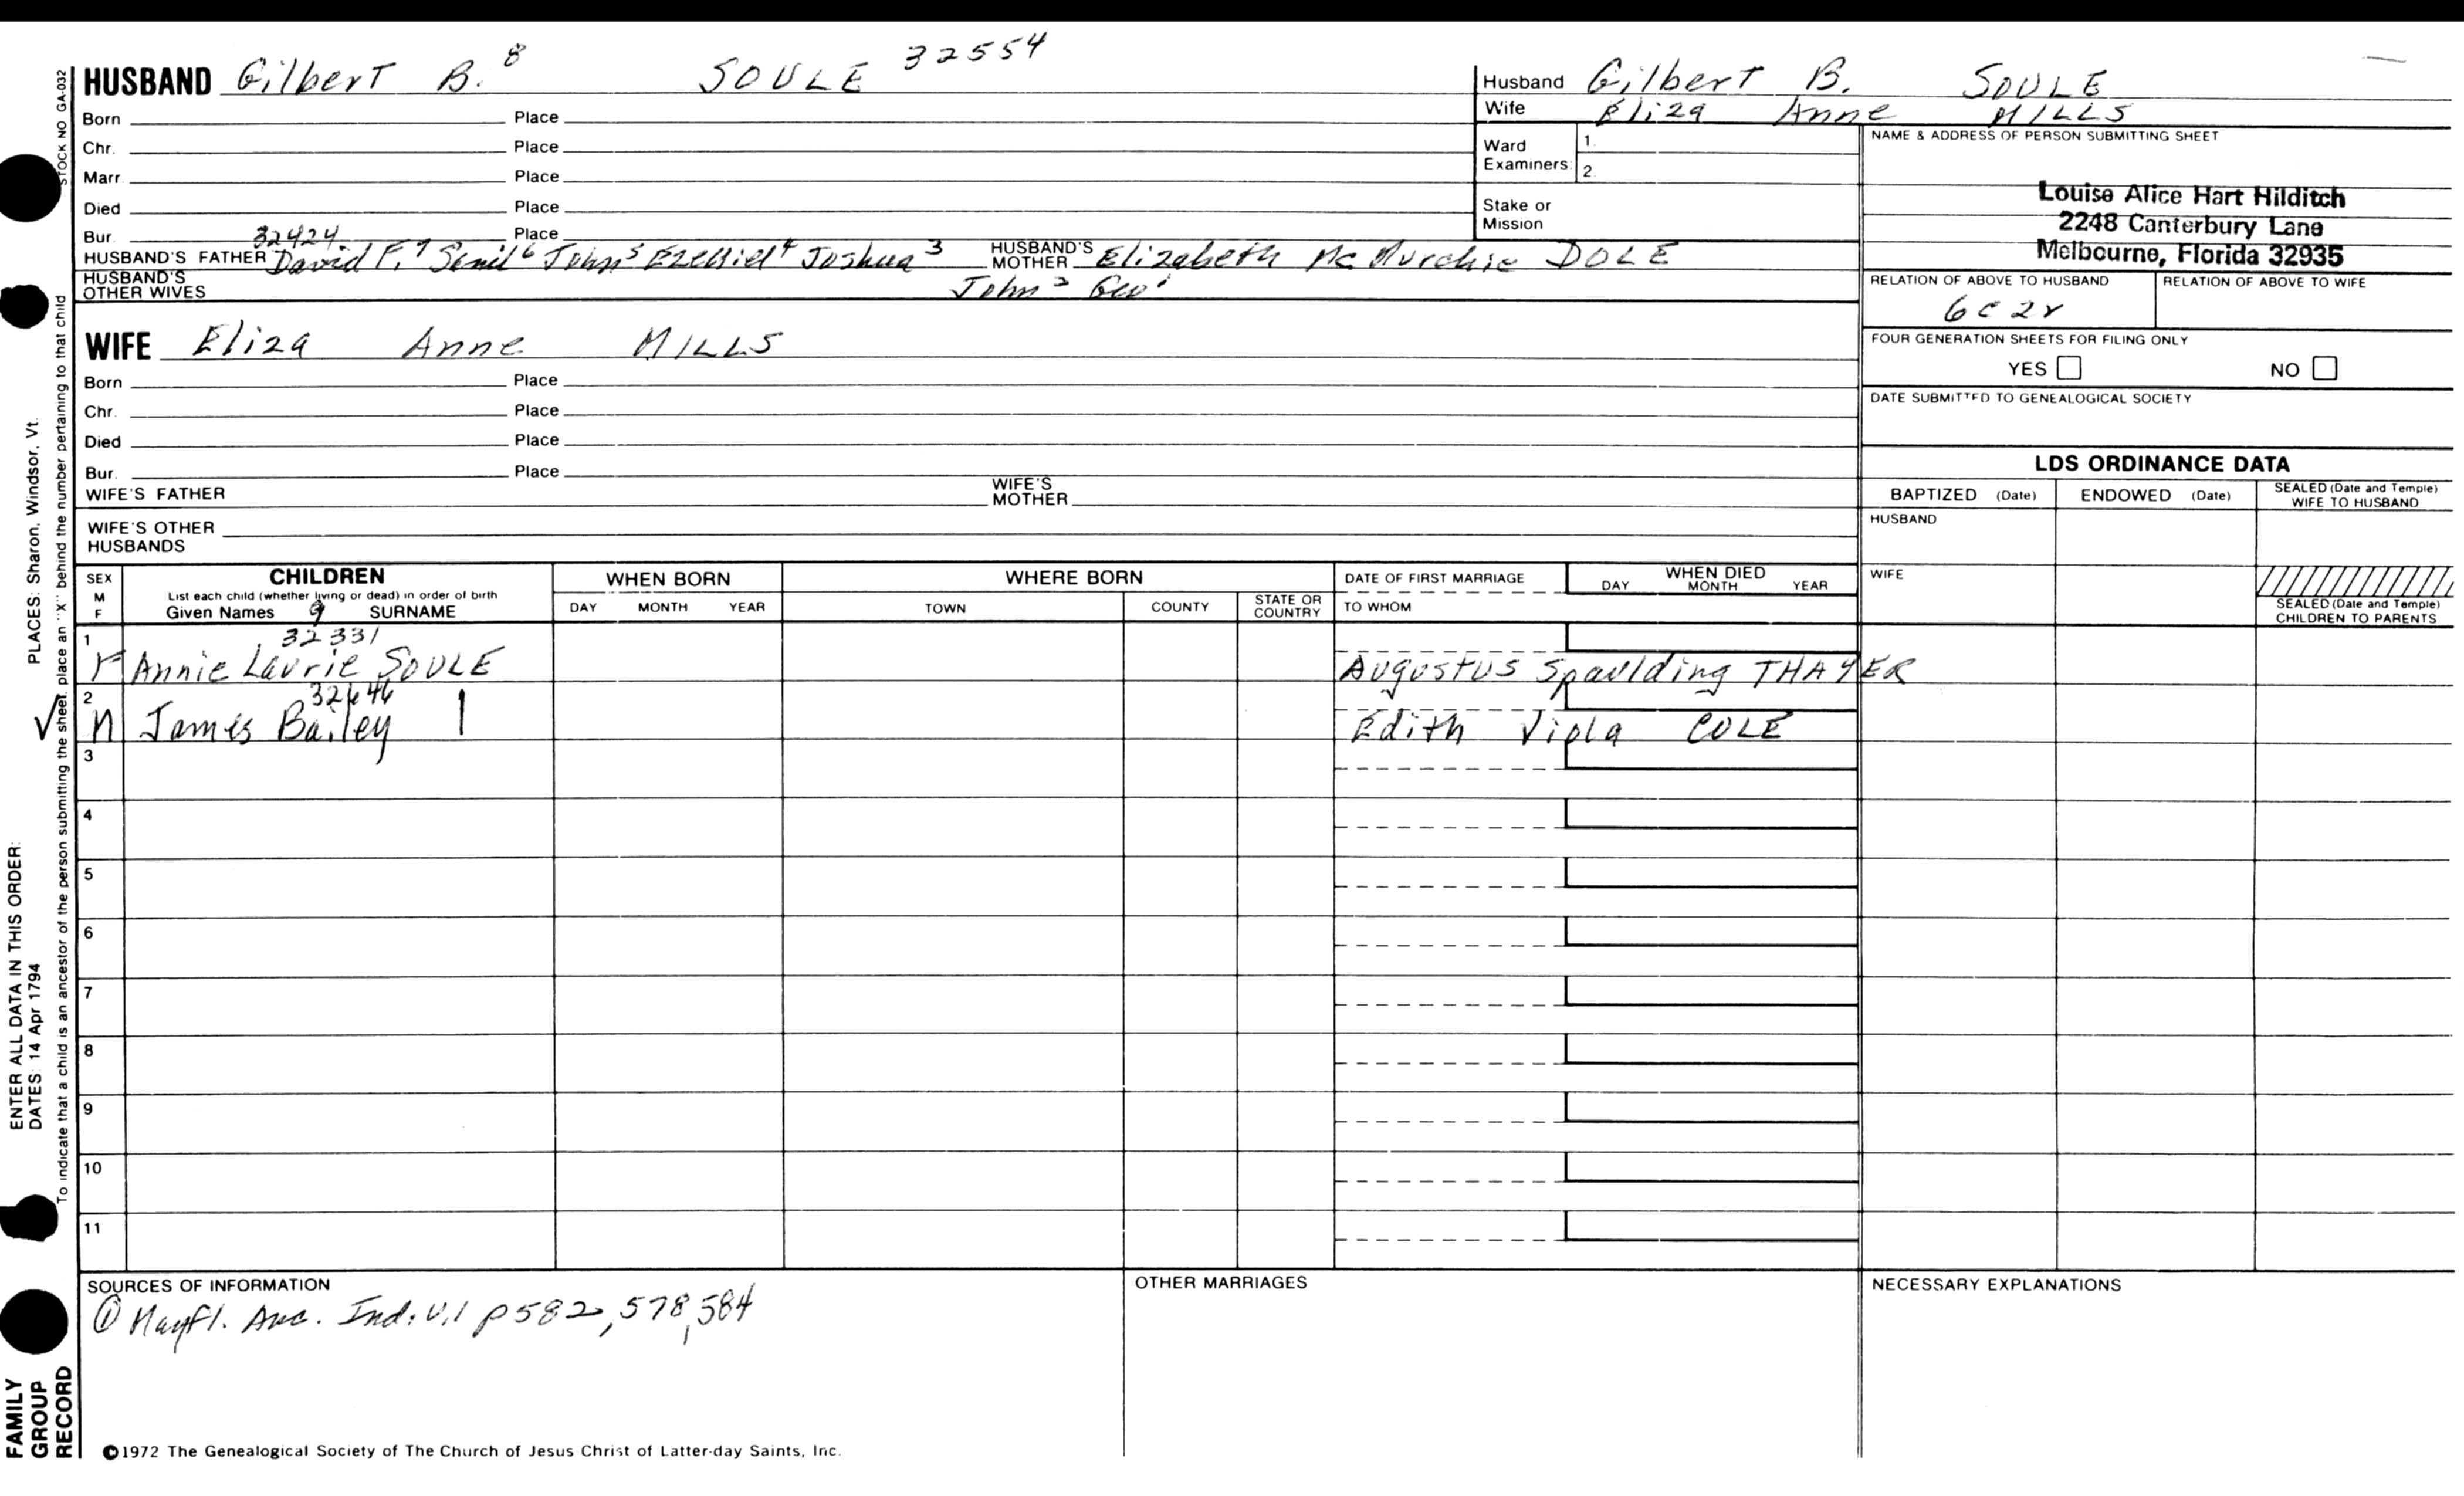 HUSBAND Gilbert B. 8 SOULE 32554
Born Place
Chr. Place
Marr. Place
Died Place
Bur. Place
32424
HUSBAND'S FATHER David F.7 6 John5 Ezekiel4 Joshua3 HUSBAND'S MOTHER Elizabeth Mc Murchie DOLE
HUSBAND'S OTHER WIVES John2 Geo1
WIFE Eliza Anne MILLS
Born Place
Chr. Place
Died Place
Bur. Place
WIFE'S FATHER WIFE'S MOTHER
WIFE'S OTHER HUSBANDS
Husband Gilbert B. SOULE
Wife Eliza Anne MILLS
Ward Examiners: 1. 2.
Stake or Mission
NAME & ADDRESS OF PERSON SUBMITTING SHEET
Louise Alice Hart Hilditch
2248 Canterbury Lane
Melbourne, Florida 32935
RELATION OF ABOVE TO HUSBAND RELATION OF ABOVE TO WIFE
6c2r
FOUR GENERATION SHEETS FOR FILING ONLY
YES NO
DATE SUBMITTED TO GENEALOGICAL SOCIETY
LDS ORDINANCE DATA
BAPTIZED (Date) ENDOWED (Date) SEALED (Date and Temple) WIFE TO HUSBAND
HUSBAND
WIFE
SEALED (Date and Temple) CHILDREN TO PARENTS
SEX M F CHILDREN WHEN BORN WHERE BORN DATE OF FIRST MARRIAGE WHEN DIED
List each child (whether living or dead) in order of birth
Given Names 9 SURNAME DAY MONTH YEAR TOWN COUNTY STATE OR COUNTRY TO WHOM DAY MONTH YEAR
1 32331
F Annie Laurie SOULE Augustus Spaulding THAYER
2 32646
M James Bailey Edith Viola COLE
3
4
5
6
7
8
9
10
11
SOURCES OF INFORMATION OTHER MARRIAGES NECESSARY EXPLANATIONS
① Mayfl. Anc. Ind. v.1 p582, 578, 584
©1972 The Genealogical Society of The Church of Jesus Christ of Latter-day Saints, Inc.
STOCK NO. GA-032
To indicate that a child is an ancestor of the person submitting the sheet, place an "X" behind the number pertaining to that child
ENTER ALL DATA IN THIS ORDER:
DATES: 14 Apr 1794 PLACES: Sharon, Windsor, Vt.
FAMILY
GROUP
RECORD